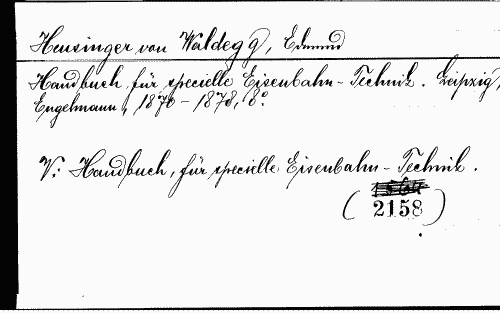 Heusinger von Waldegg, Edmund
Handbuch für specielle Eisenbahn-Technik. Leipzig,
Engelmann, 1870-1878. 8º.
V: Handbuch, für specielle Eisenbahn-Technik.
(2158)